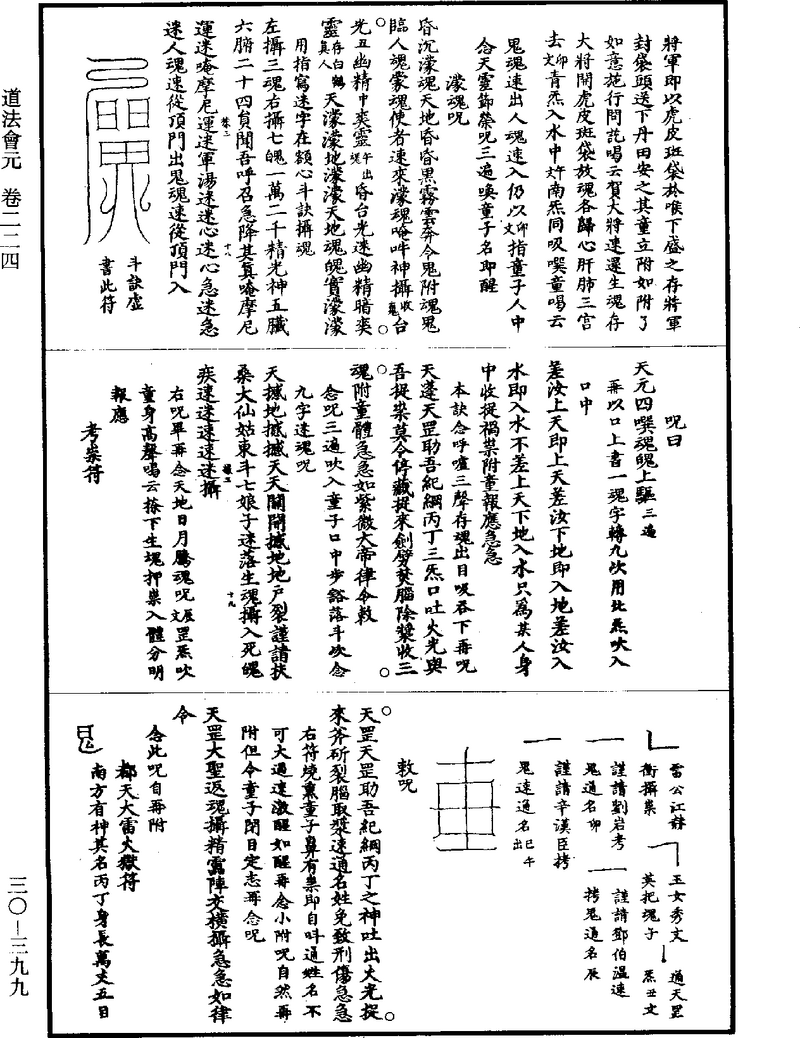 道法會元 卷二二四
三〇—三九九
將軍即以虎皮斑袋於喉下盛之存將軍
封袋頭送下丹田安之其童立附如附了
如意施行問訖喝云賀大將速還生魂存
大將開虎皮斑袋放魂各歸心肝肺三宮
去卯文青炁入水中午南炁同吸噀童喝云
鬼魂速出人魂速入仍以卯文指童子人中
念天靈節榮呪三遍喚童子名即醒
濛魂呪
昏沉濛魂天地昏昏黑霧雲奔令鬼附魂鬼
臨人魂蒙魂使者速來濛魂唵吽神攝收魂台
光丑幽精中爽靈午出昏台光迷幽精暗爽
靈存白鶴真人天濛濛地濛濛天地魂魄實濛濛
用指寫迷字在額心斗訣攝魂
左攝三魂右攝七魄一萬二千精光神五臟
六腑二十四員聞吾呼召急降其真唵摩尼
運迷唵摩尼運迷軍湯迷迷心迷心急迷急
迷人魂速從頂門出鬼魂速從頂門入
斗訣虛
書此符
呪曰
天元四噀魂魄上驅三遍
再以口上書一魂字轉九吹用北炁吹入
口中
差汝上天即上天差汝下地即入地差汝入
水即入水不差上天下地入水只爲某人身
中收捉禍祟附童報應急急
本訣念呼嚧三聲存魂出目吸吞下再呪
天蓬天罡助吾紀綱丙丁三炁口吐火光與
吾捉祟莫令停藏捉來劍劈焚腦除漿收三
魂附童體急急如紫微大帝律令敕
念呪三遍吹入童子口中步豁落斗吹念
九字迷魂呪
天撼地撼撼天天關開撼地地户裂謹請扶
桑大仙姑東斗七娘子迷落生魂攝入死魄
疾速迷迷迷迷攝
右呪畢再念天地日月騰魂呪辰文罡炁吹
童身高聲喝云捺下生魂押祟入體分明
報應
考祟符
雷公江赫
衝攝祟
謹請劉岩考
鬼通名卯
謹請辛漢臣拷
鬼速通名巳午出
玉女秀文
英把魂子
謹請鄧伯溫速
拷鬼通名辰
通天罡
炁丑文
敕呪
天罡天罡助吾紀綱丙丁之神吐出火光捉
來斧斫裂腦取漿速通名姓免致刑傷急急
右符燒熏童子鼻有祟即自呌通姓名不
可大過速激醒如醒再念小附呪自然再
附但令童子閉目定志再念呪
天罡大聖返魂攝精雷陣交橫攝急急如律
令
念此呪自再附
都天大雷火獄符
南方有神其名丙丁身長萬丈五日